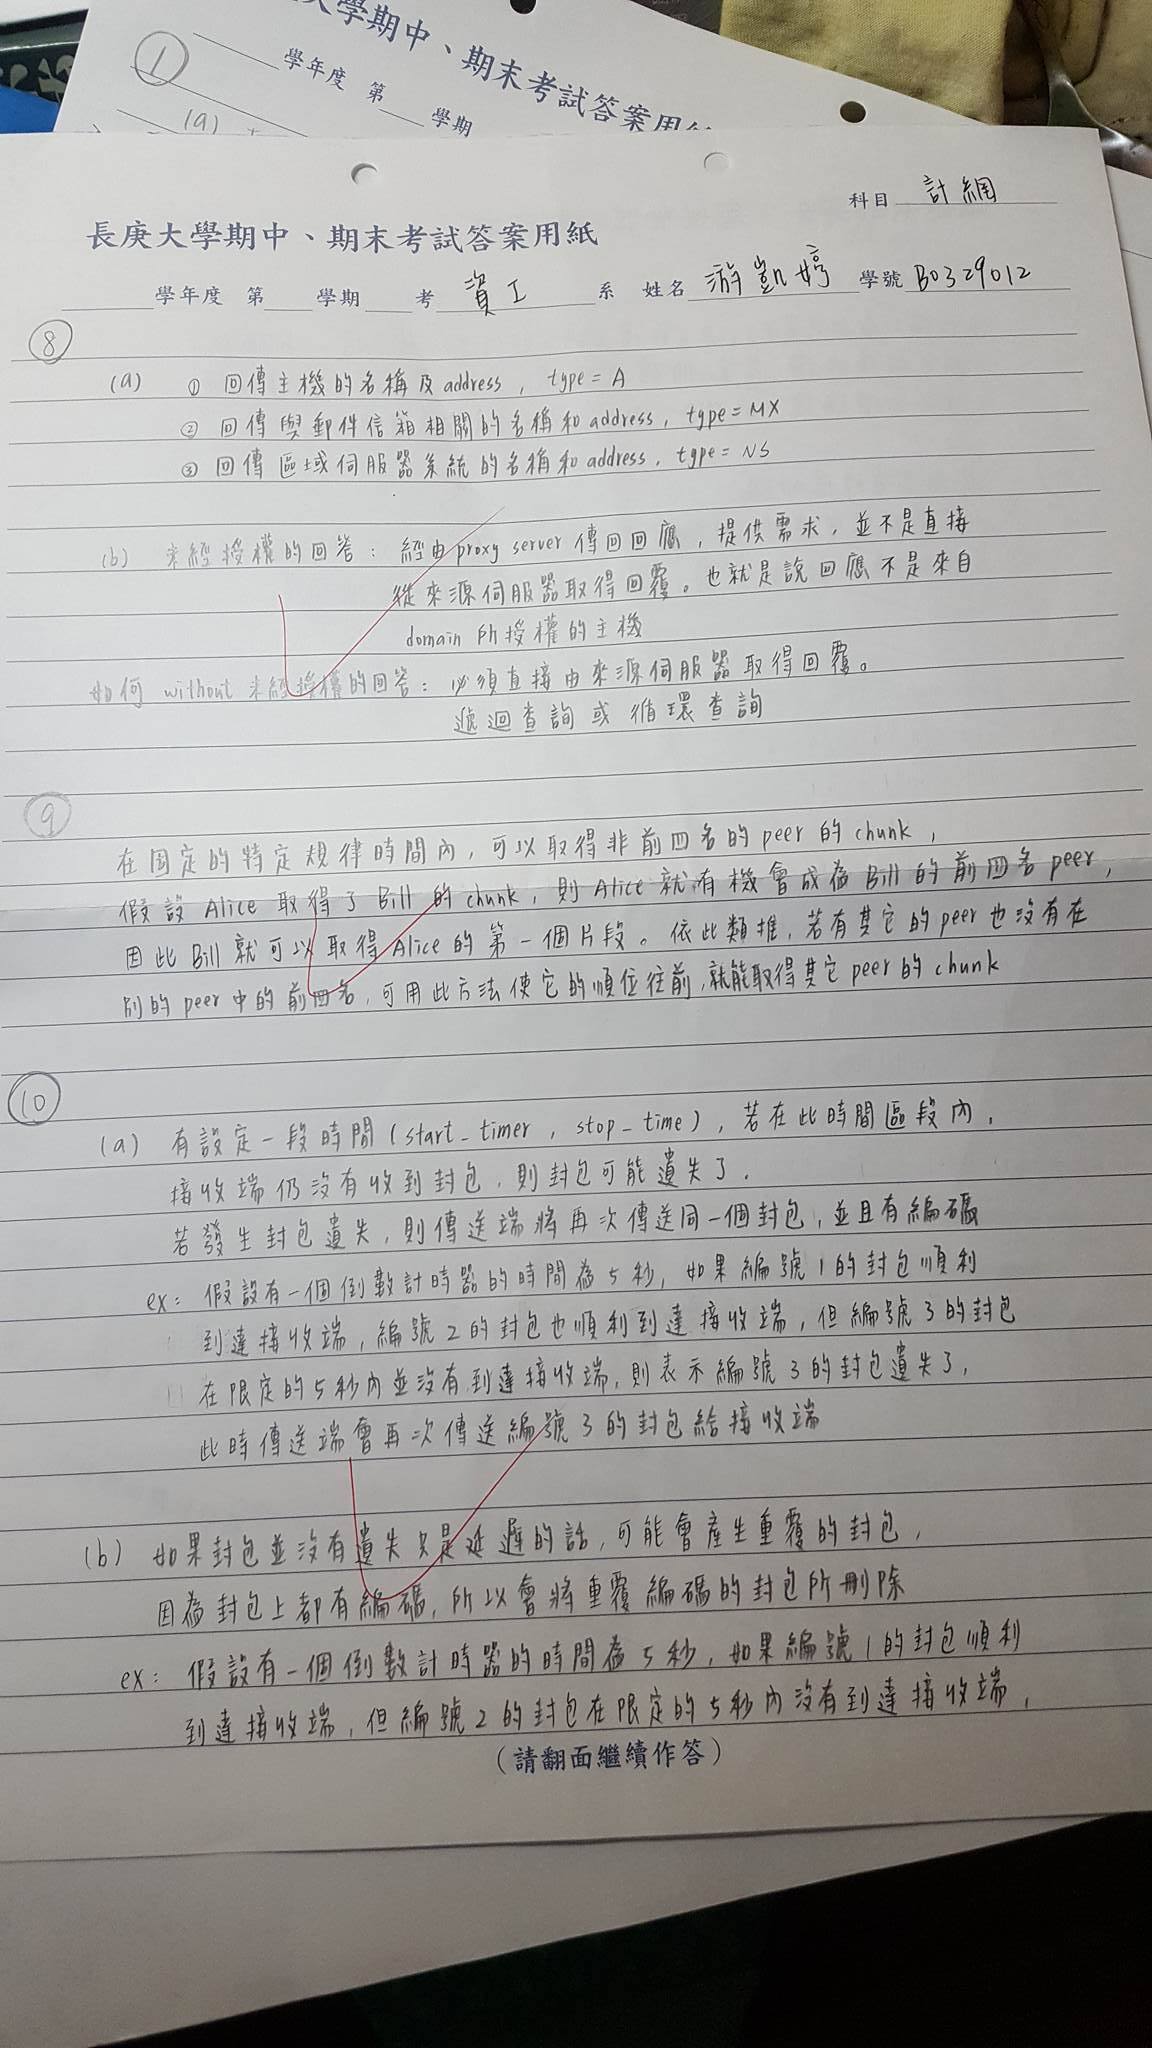 大學期中、期末考試答案用紙
①
學年度 第 學期
(a)
科目 計網
長庚大學期中、期末考試答案用紙
學年度 第 學期 考 資工 系 姓名 游凱婷 學號 B0329012
⑧
(a) ① 回傳主機的名稱及address, type=A
② 回傳與郵件信箱相關的名稱和address, type=MX
③ 回傳區域伺服器系統的名稱和address, type=NS
(b) 未經授權的回答: 經由proxy server傳回回應, 提供需求, 並不是直接
從來源伺服器取得回覆。也就是說回應不是來自
domain 所授權的主機
如何 without 未經授權的回答: 必須直接由來源伺服器取得回覆。
遞迴查詢或循環查詢
⑨
在固定的特定規律時間內, 可以取得非前四名的peer的chunk,
假設Alice取得了Bill的chunk, 則Alice就有機會成為Bill的前四名peer,
因此Bill就可以取得Alice的第一個片段。依此類推, 若有其它的peer也沒有在
別的peer中的前四名, 可用此方法使它的順位往前, 就能取得其它peer的chunk
⑩
(a) 有設定一段時間(start_timer, stop_time), 若在此時間區段內,
接收端仍沒有收到封包, 則封包可能遺失了.
若發生封包遺失, 則傳送端將再次傳送同一個封包, 並且有編碼
ex: 假設有一個倒數計時器的時間為5秒, 如果編號1的封包順利
到達接收端, 編號2的封包也順利到達接收端, 但編號3的封包
在限定的5秒內並沒有到達接收端, 則表示編號3的封包遺失了,
此時傳送端會再次傳送編號3的封包給接收端
(b) 如果封包並沒有遺失只是延遲的話, 可能會產生重覆的封包,
因為封包上都有編碼, 所以會將重覆編碼的封包所刪除
ex: 假設有一個倒數計時器的時間為5秒, 如果編號1的封包順利
到達接收端, 但編號2的封包在限定的5秒內沒有到達接收端,
(請翻面繼續作答)